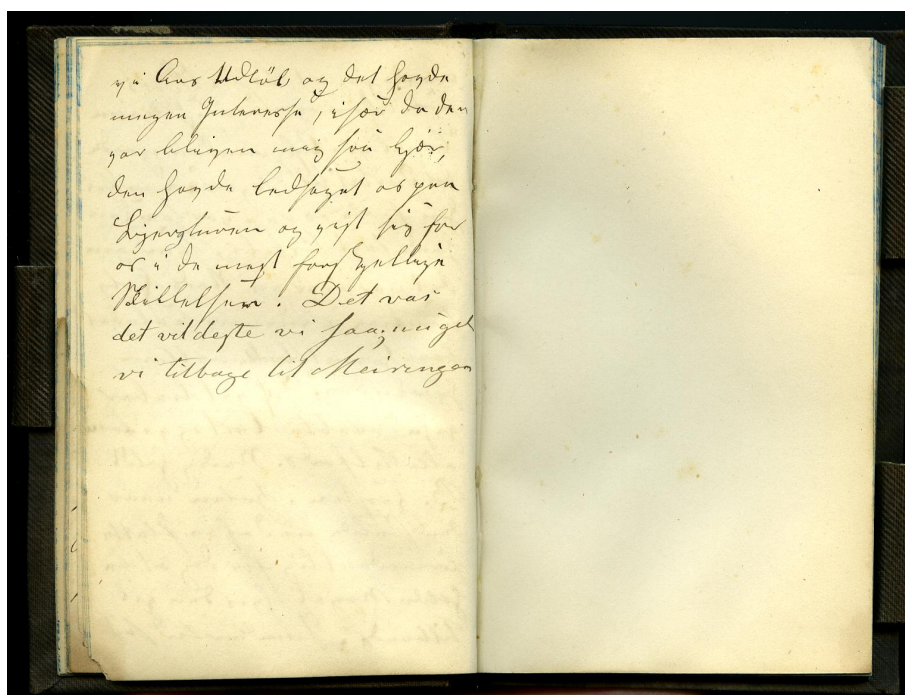 vi Aars Udløb, og det havde
megen Interesse, især da den
var bleven mig saa kjær,
den havde ledsaget os paa
Bjergturen og vist sig for
os i de mest forskjellige
Skikkelser. Det var
det vildeste vi saa,
vi tilbage til Meiringen